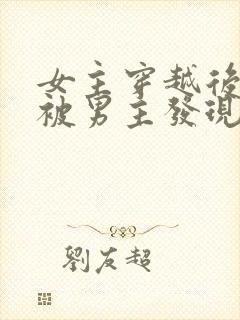 女主穿越後
被男主發現
劉友超